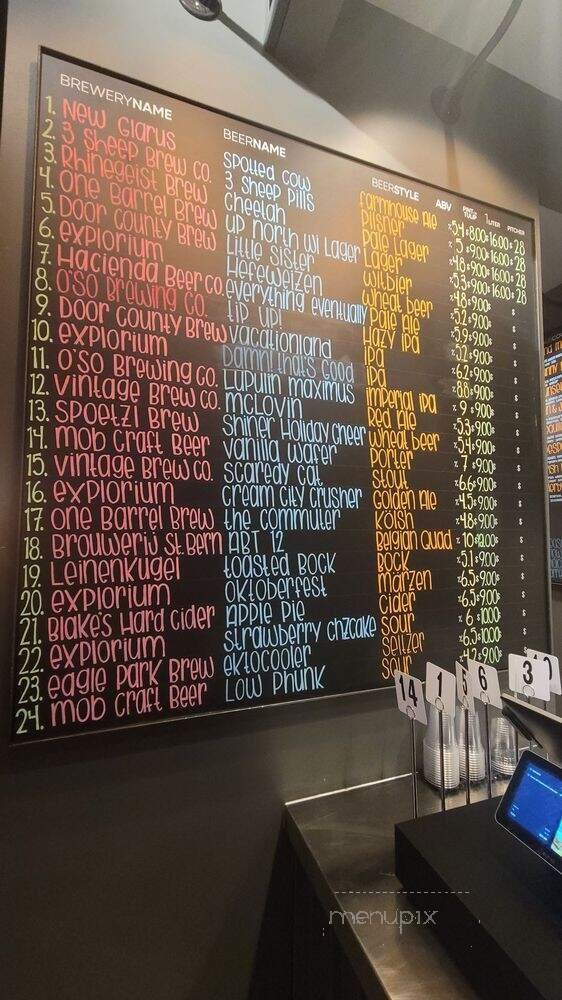 BREWERYNAME BEERNAME BEERSTYLE ABV PINT TULIP 1LITER PITCHER
1. New Glarus Spotted Cow Farmhouse Ale %5.4 $8.00 $16.00 $28
2. 3 Sheep Brew Co. 3 Sheep Pills Pilsner %5 $8.00 $16.00 $28
3. Rhinegeist Brew Cheetah Pale Lager %4.8 $8.00 $16.00 $28
4. One Barrel Brew Up North WI Lager Lager %5.3 $8.00 $16.00 $28
5. Door County Brew Little Sister Witbier %4.8 $9.00 $
6. Explorium Hefeweizen Wheat Beer %5.2 $9.00 $
7. Hacienda Beer Co. Everything Eventually Pale Ale %5.9 $9.00 $
8. O'so Brewing Co. Tip Up! Hazy IPA %5.2 $9.00 $
9. Door County Brew Vacationland IPA %6.2 $9.00 $
10. Explorium Damn! That's Good IPA %8.8 $9.00 $
11. O'so Brewing Co. Lupulin Maximus Imperial IPA %9 $9.00 $
12. Vintage Brew Co. McLovin Red Ale %5.3 $9.00 $
13. Spoetzl Brew Shiner Holiday Cheer Wheat Beer %5.4 $9.00 $
14. Mob Craft Beer Vanilla Wafer Porter %7 $9.00 $
15. Vintage Brew Co. Scaredy Cat Stout %6.6 $9.00 $
16. Explorium Cream City Crusher Golden Ale %4.5 $9.00 $
17. One Barrel Brew The Commuter Kölsh %4.8 $9.00 $
18. Brouwerij St. Bern ABT 12 Belgian Quad %10 $
19. Leinenkugel Toasted Bock Bock %5.1 $9.00 $
20. Explorium Oktoberfest Märzen %6.5 $9.00 $
21. Blake's Hard Cider Apple Pie Cider %6.5 $9.00 $
22. Explorium Strawberry Chzcake Sour %6 $10.00 $
23. Eagle Park Brew Ektocooler Seltzer %6.5 $10.00 $
24. Mob Craft Beer Low Phunk Sour %4.2 $9.00
14 1 5 6 3
menupix